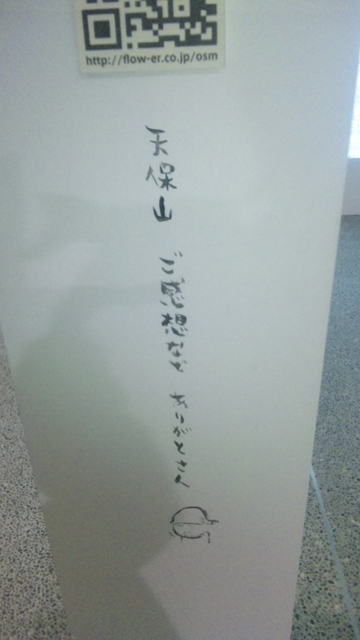 http://flow-er.co.jp/osm
天保山 ご感想など ありがとさん